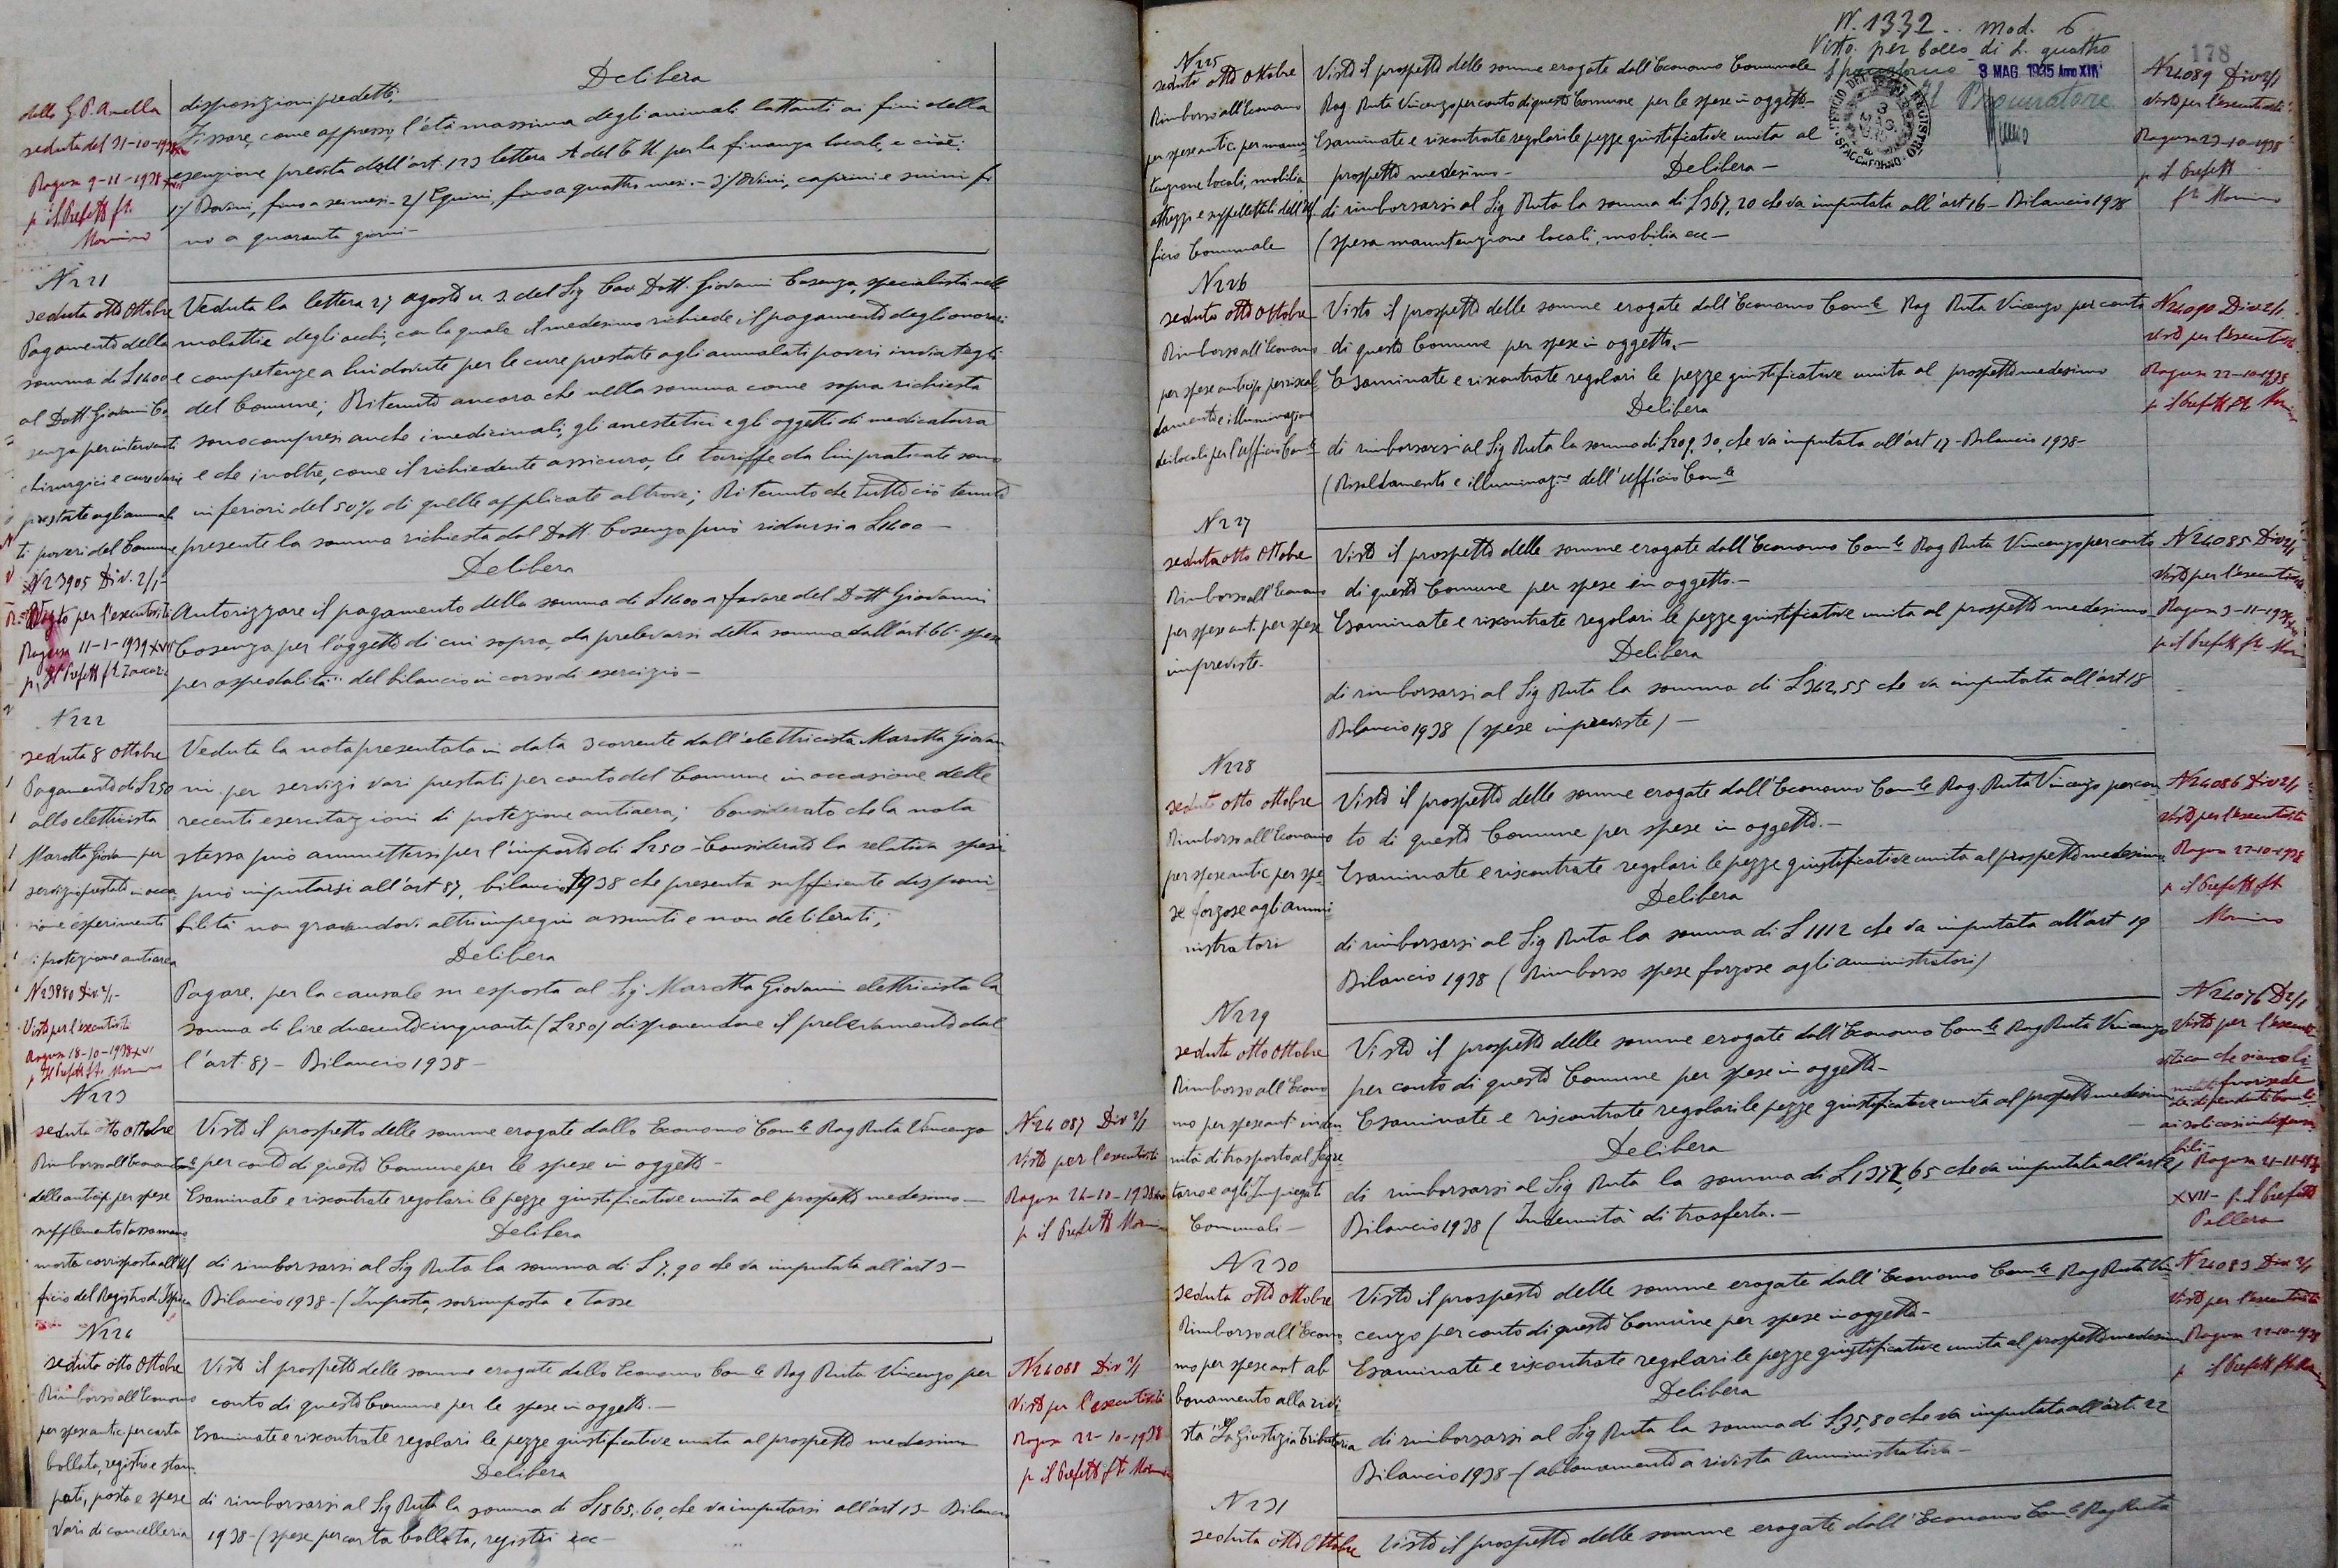 Delibera
della G. P. A. nella
seduta del 31-10-1938
Ragusa 9-11-1938 XVII
p. il Prefetto fto
Mormino
disposizioni predette,
Fissare, come appresso, l'età massima degli animali lattanti ai fini della
esenzione prevista dall'art. 123 lettera A del T. U. per la finanza locale, e cioè:
1/ Bovini, fino a sei mesi - 2/ Equini, fino a quattro mesi. - 3/ Ovini, caprini e suini fi
no a quaranta giorni -
N 221
seduta otto Ottobre
Pagamento della
somma di £ 1400
al Dott. Giovanni Co
senza per interventi
chirurgici e cure varie
prestate agli ammala
ti poveri del Comune
N 23905 Div. 2/1-
Visto per l'esecutorietà
Ragusa 11-1-1939 XVII
p. Il Prefetto ft.
Veduta la lettera 27 agosto u. s. del Sig Cav Dott. Giovanni Cosenza, specialista nelle
malattie degli occhi, con la quale il medesimo richiede il pagamento degli onorari
e competenze a lui dovute per le cure prestate agli ammalati poveri inviategli
del Comune; Ritenuto ancora che nella somma come sopra richiesta
sono compresi anche i medicinali, gli anestetici e gli oggetti di medicatura
e che inoltre, come il richiedente assicura, le tariffe da lui praticate sono
inferiori del 50% di quelle applicate altrove; Ritenuto che tutto ciò tenuto
presente la somma richiesta dal Dott. Cosenza può ridursi a £ 1400 -
Delibera
Autorizzare il pagamento della somma di £ 1400 a favore del Dott Giovanni
Cosenza per l'oggetto di cui sopra, da prelevarsi detta somma dall'art. 66 spese
per ospedalità del bilancio in corso di esercizio -
N 222
seduta 8 Ottobre
Pagamento di £ 250
allo elettricista
Marotta Giovan per
servizi prestati in occa
sione esperimenti
di protezione antiarea
N 23880 Div. 2/1-
Visto per l'esecutorietà
Ragusa 18-10-1938 XVI
p Il Prefetto fto Mormino
Veduta la nota presentata in data 3 corrente dall'elettricista Marotta Giovan
ni per servizi vari prestati per conto del Comune in occasione delle
recenti esercitazioni di protezione antiaerea; Considerato che la nota
stessa può ammettersi per l'importo di £ 250 - Considerato la relativa spesa
può imputarsi all'art 87, bilancio 1938 che presenta sufficiente disponi-
bilità non gravandovi altri impegni assunti e non deliberati;
Delibera
Pagare, per la causale su esposta al Sig. Marotta Giovanni elettricista la
somma di lire duecentocinquanta (£ 250) disponendone il prelevamento dal
l'art. 87 - Bilancio 1938 -
N 223
seduta otto Ottobre
Rimborso all'Economo Com.le
delle anticip. per spese
supplemento tassa mano
morta corrisposta all'Uf
ficio del Registro di Ispica
Visto il prospetto delle somme erogate dallo Economo Com.le Rag Ruta Vincenzo
per conto di questo Comune per le spese in oggetto -
Esaminate e riscontrate regolari le pezze giustificative unita al prospetto medesimo -
Delibera
di rimborsarsi al Sig Ruta la somma di £ 7,90 che va imputata all'art 3 -
Bilancio 1938 - (Imposta, sovrimposta e tasse
N 24087 Div 2/1
Visto per l'esecutorietà
Ragusa 24-10-1938
p il Prefetto Mormino
N 224
seduta otto Ottobre
Rimborso all'Economo
per spese antic. per carta
bollata, registri e stam
pati, posta e spese
vari di cancelleria
Visto il prospetto delle somme erogate dallo Economo Com.le Rag Ruta Vincenzo per
conto di questo Comune per le spese in oggetto. -
Esaminate e riscontrate regolari le pezze giustificative unita al prospetto medesimo
Delibera
di rimborsarsi al Sig Ruta la somma di £ 1865,60, che va imputarsi all'art 13 - Bilancio
1938 - (spese per carta bollata, registri ecc -
N 24088 Div 2/1
Visto per l'esecutorietà
Ragusa 22-10-1938
p il Prefetto fto Mormino
N. 1332 .. Mod. 6
Visto per bollo di L. quattro
Spaccaforno 3 MAG. 1935 Anno XIII
Il Procuratore
UFFICIO DEL REGISTRO
SPACCAFORNO
178
N 225
seduta otto Ottobre
Rimborso all'Economo
per spese antic. per manu
tenzione locali, mobilia
attrezzi e suppellettili dell'Uf
ficio Comunale
Visto il prospetto delle somme erogate dall'Economo Comunale
Rag. Ruta Vincenzo per conto di questo Comune per le spese in oggetto -
Esaminate e riscontrate regolari le pezze giustificative unita al
prospetto medesimo -
Delibera -
di rimborsarsi al Sig Ruta la somma di £ 367,20 che va imputata all'art 16 - Bilancio 1938
(spesa manutenzione locali, mobilia ecc -
N 24089 Div 2/1
Visto per l'esecutorietà
Ragusa 23-10-1938
p il Prefetto
fto Mormino
N 226
seduta otto Ottobre
Rimborso all'Economo
per spese anticip. per riscal
damento e illuminazione
dei locali per l'Ufficio Com.le
Visto il prospetto delle somme erogate dall'Economo Com.le Rag Ruta Vincenzo per conto
di questo Comune per spese in oggetto. -
Esaminate e riscontrate regolari le pezze giustificative unita al prospetto medesimo
Delibera
di rimborsarsi al Sig Ruta la somma di £ 209,30, che va imputata all'art 17 - Bilancio 1938 -
(Risaldamento e illuminaz.ne dell'Ufficio Com.le
N 24090 Div 2/1.
visto per l'esecutorietà
Ragusa 22-10-1938
p il Prefetto fto Mormino
N 227
seduta otto Ottobre
Rimborso all'Economo
per spese ant. per spese
impreviste -
Visto il prospetto delle somme erogate dall'Economo Com.le Rag Ruta Vincenzo per conto
di questo Comune per spese in oggetto. -
Esaminate e riscontrate regolari le pezze giustificative unita al prospetto medesimo
Delibera
di rimborsarsi al Sig Ruta la somma di £ 342,55 che va imputata all'art 18
Bilancio 1938 (spese impreviste) -
N 24085 Div 2/1
Visto per l'esecutorietà
Ragusa 3-11-1938
p il Prefetto fto Mormino
N 228
seduta otto ottobre
Rimborso all'Economo
per spese antic. per spe-
se forzose agli ammi
nistratori
Visto il prospetto delle somme erogate dall'Economo Com.le Rag. Ruta Vincenzo per con
to di questo Comune per spese in oggetto. -
Esaminate e riscontrate regolari le pezze giustificative unita al prospetto medesimo
Delibera
di rimborsarsi al Sig Ruta la somma di £ 1112 che va imputata all'art 19
Bilancio 1938 (Rimborso spese forzose agli amministratori)
N 24086 Div 2/1
Visto per l'esecutorietà
Ragusa 22-10-1938
p il Prefetto fto
Mormino
N 229
seduta otto Ottobre
Rimborso all'Econo
mo per spese ant inden
nità di trasporto al Segre
tario e agli Impiegati
Comunali -
Visto il prospetto delle somme erogate dall'Economo Com.le Rag Ruta Vincenzo
per conto di questo Comune per spese in oggetto -
Esaminate e riscontrate regolari le pezze giustificative unita al prospetto medesimo
Delibera
di rimborsarsi al Sig Ruta la somma di £ 65 che va imputata all'art 21
Bilancio 1938 (Indennità di trasferta. -
N 24076 D 2/1
Visto per l'esecuto
che siano li
fuori sede
dei dipendenti Com.li
ai soli casi indispensa
bili -
Ragusa 21-11-1938
XVII - p. il Prefetto
Pellera
N 230
seduta otto ottobre
Rimborso all'Econo
mo per spese ant ab
bonamento alla rivi
sta "La Giustizia Tributaria
Visto il prospetto delle somme erogate dall'Economo Com.le Rag Ruta Vin
cenzo per conto di questo Comune per spese in oggetto -
Esaminate e riscontrate regolari le pezze giustificative unita al prospetto medesimo
Delibera
di rimborsarsi al Sig Ruta la somma di £ 35,80 che va imputata all'art. 22
Bilancio 1938 - (abbonamento a rivista Amministrativa -
N 24083 Div 2/1
Visto per l'esecutorietà
Ragusa 22-10-1938
p il Prefetto fto Mormino
N 231
seduta otto Ottobre
Visto il prospetto delle somme erogate dall'Economo Com.le Rag Ruta